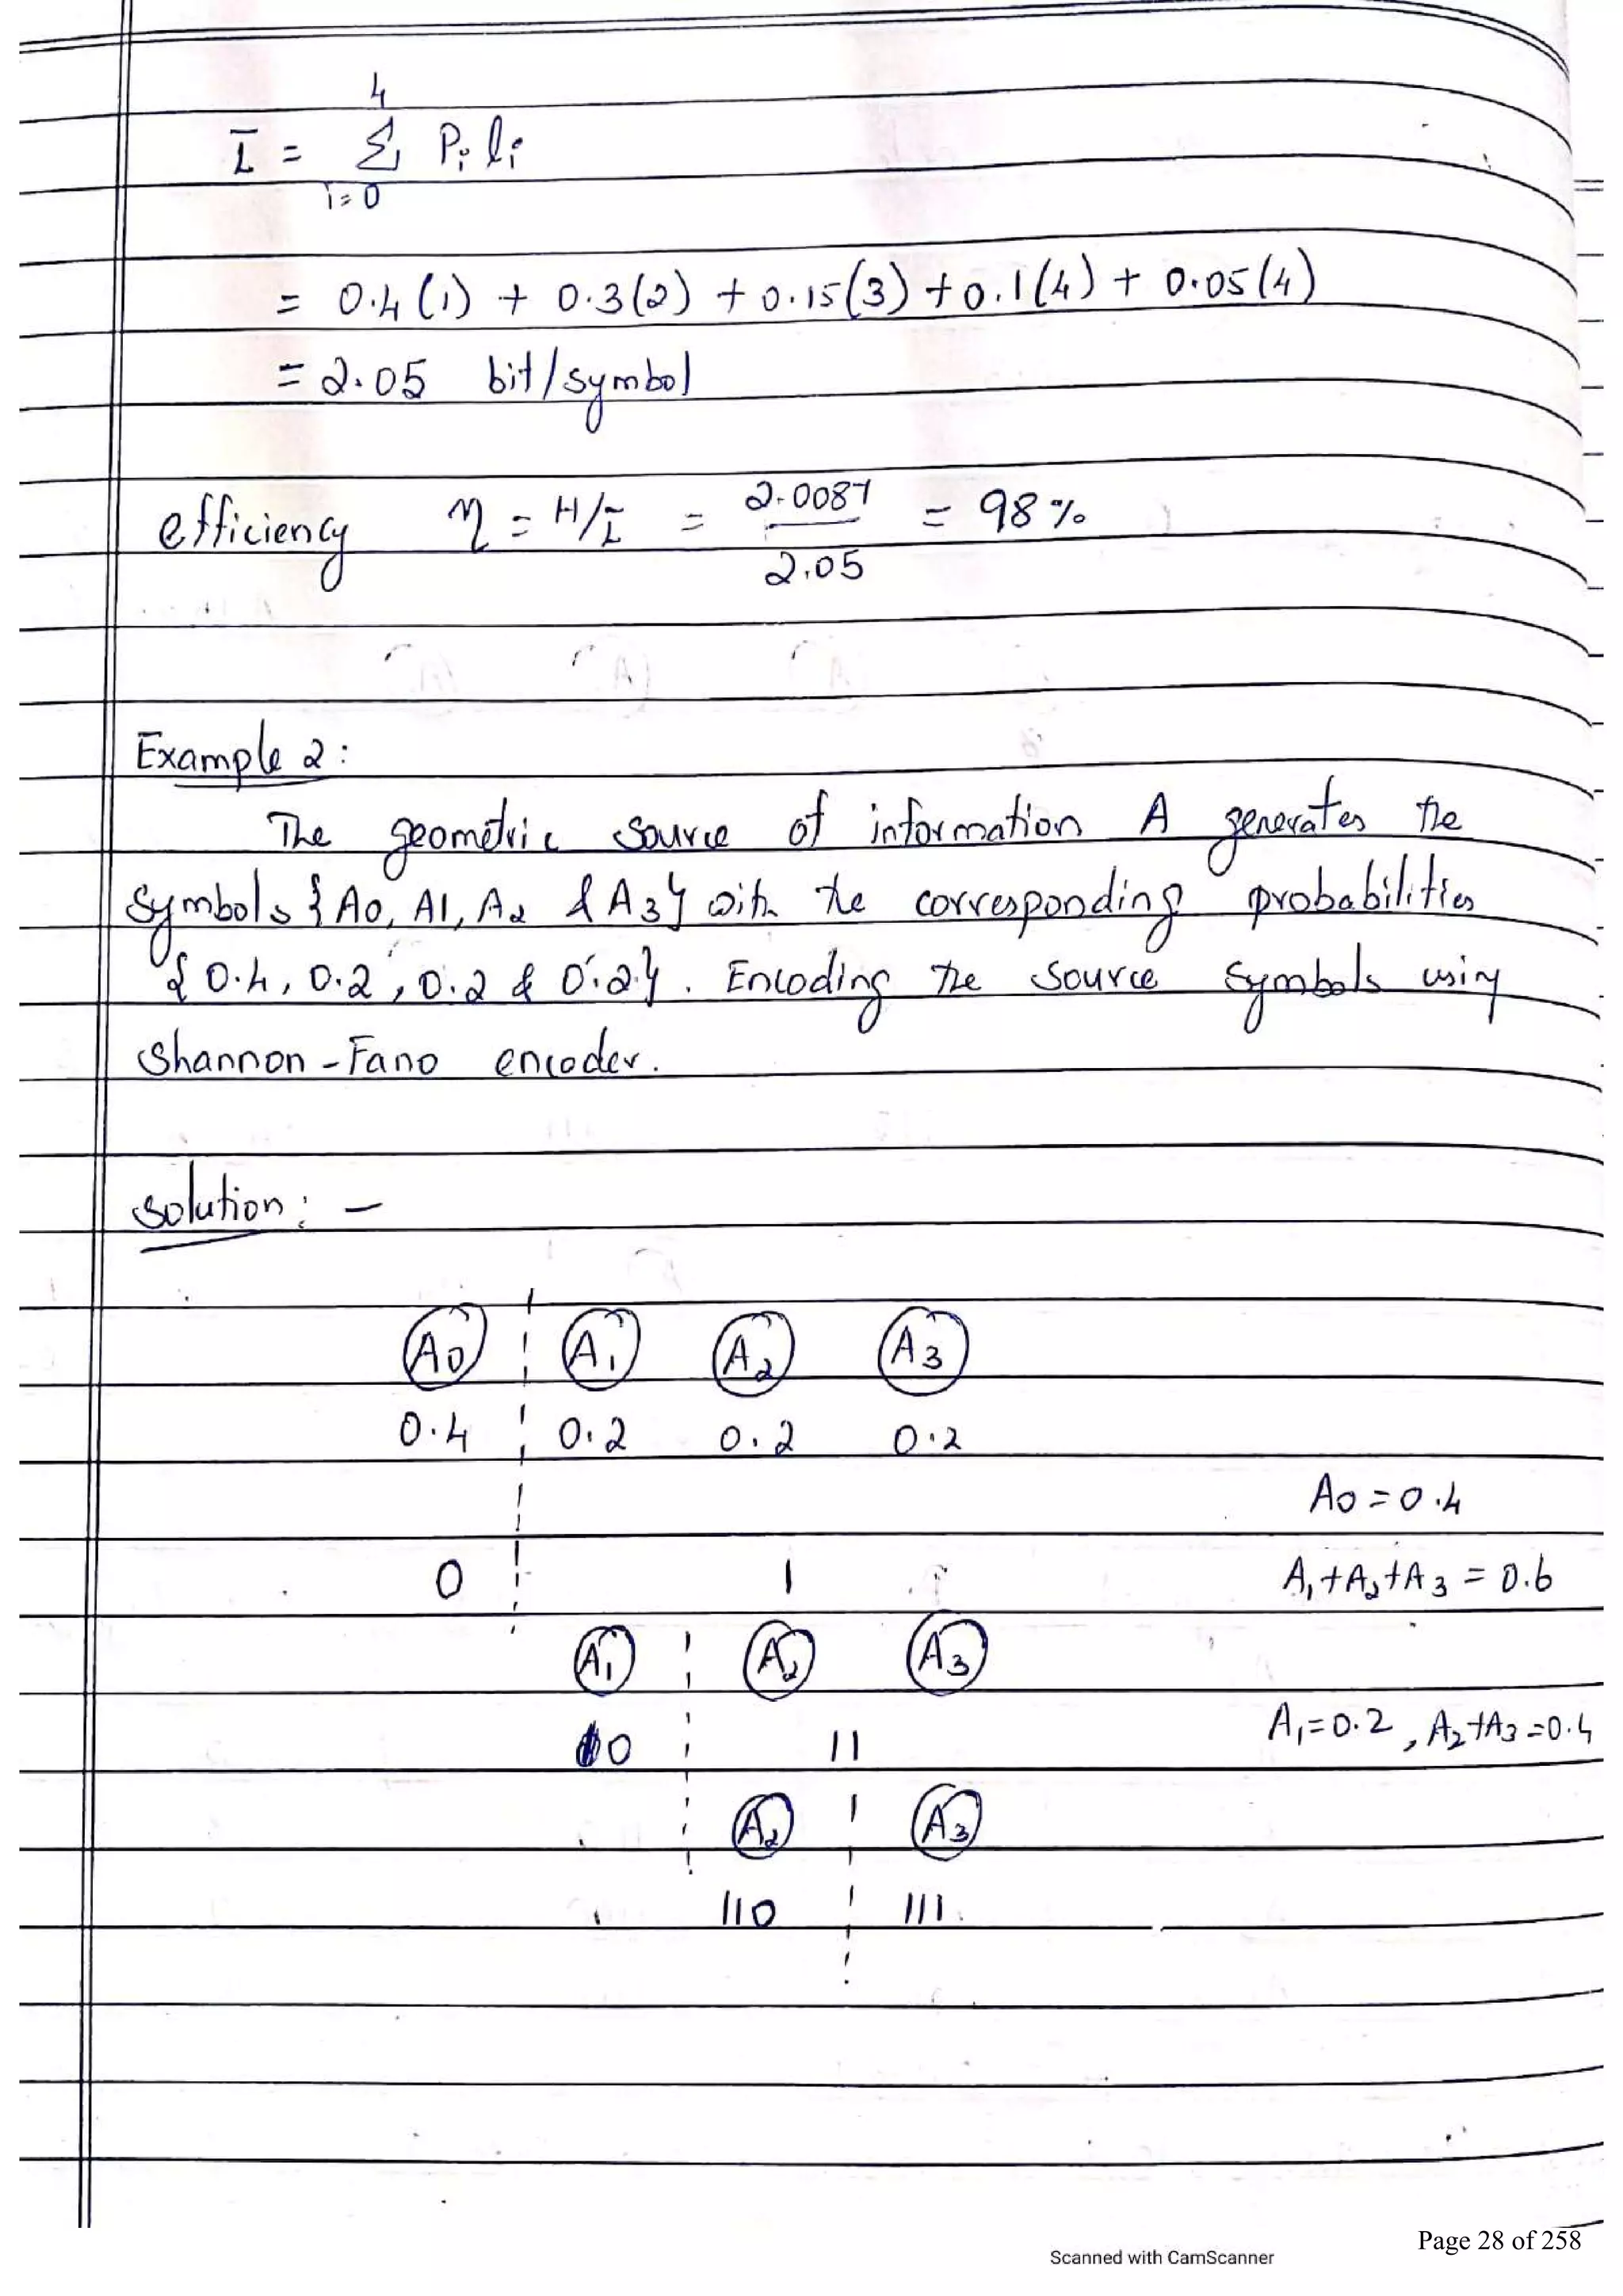 4
L̄ = Σ Pi li
i=0
= 0.4(1) + 0.3(2) + 0.15(3) + 0.1(4) + 0.05(4)
= 2.05 bit/symbol
efficiency η = H/L̄ = 2.0087 / 2.05 = 98%
Example 2:
The geometric source of information A generates the
symbols {A0, A1, A2 & A3} with the corresponding probabilities
{0.4, 0.2, 0.2 & 0.2}. Encoding the source symbols using
Shannon-Fano encoder.
Solution: -
A0 A1 A2 A3
0.4 0.2 0.2 0.2
A0 = 0.4
0 1 A1+A2+A3 = 0.6
A1 A2 A3
10 11 A1=0.2, A2+A3=0.4
A2 A3
110 111
Page 28 of 258
Scanned with CamScanner